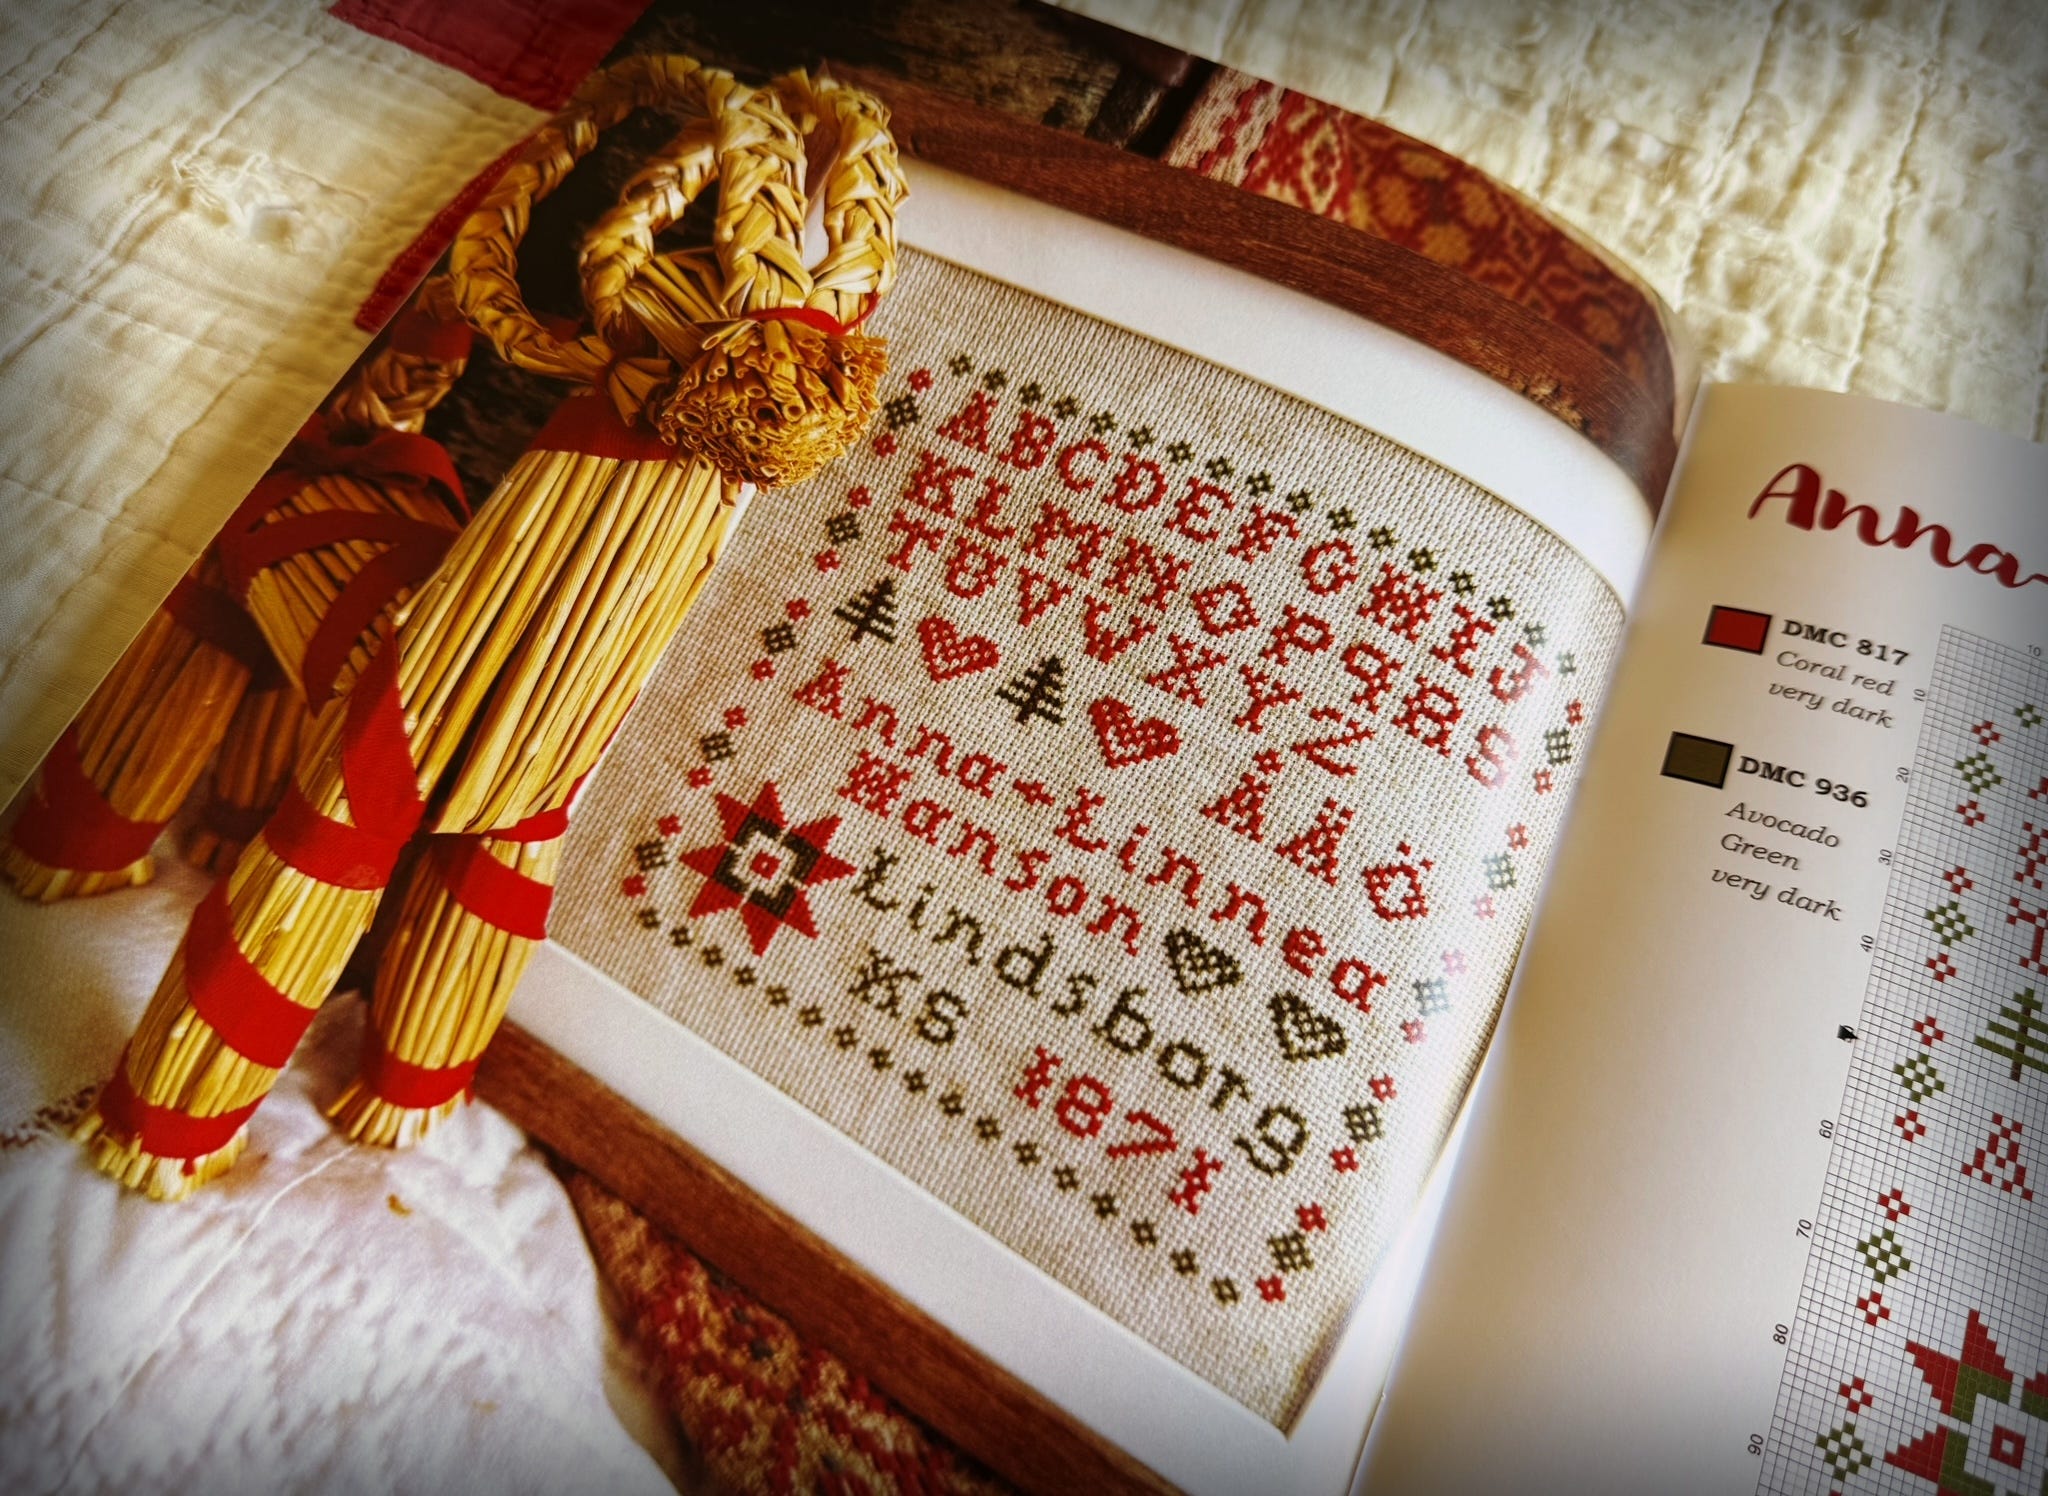 ABCDEFGHIJ
KLMNOPQRS
TUVWXYZ
ÅÄÖ
Anna-Linnea
Hanson
Lindsborg
KS 1871
Anna-
DMC 817
Coral red
very dark
DMC 936
Avocado
Green
very dark
10
10
20
30
40
60
70
80
90